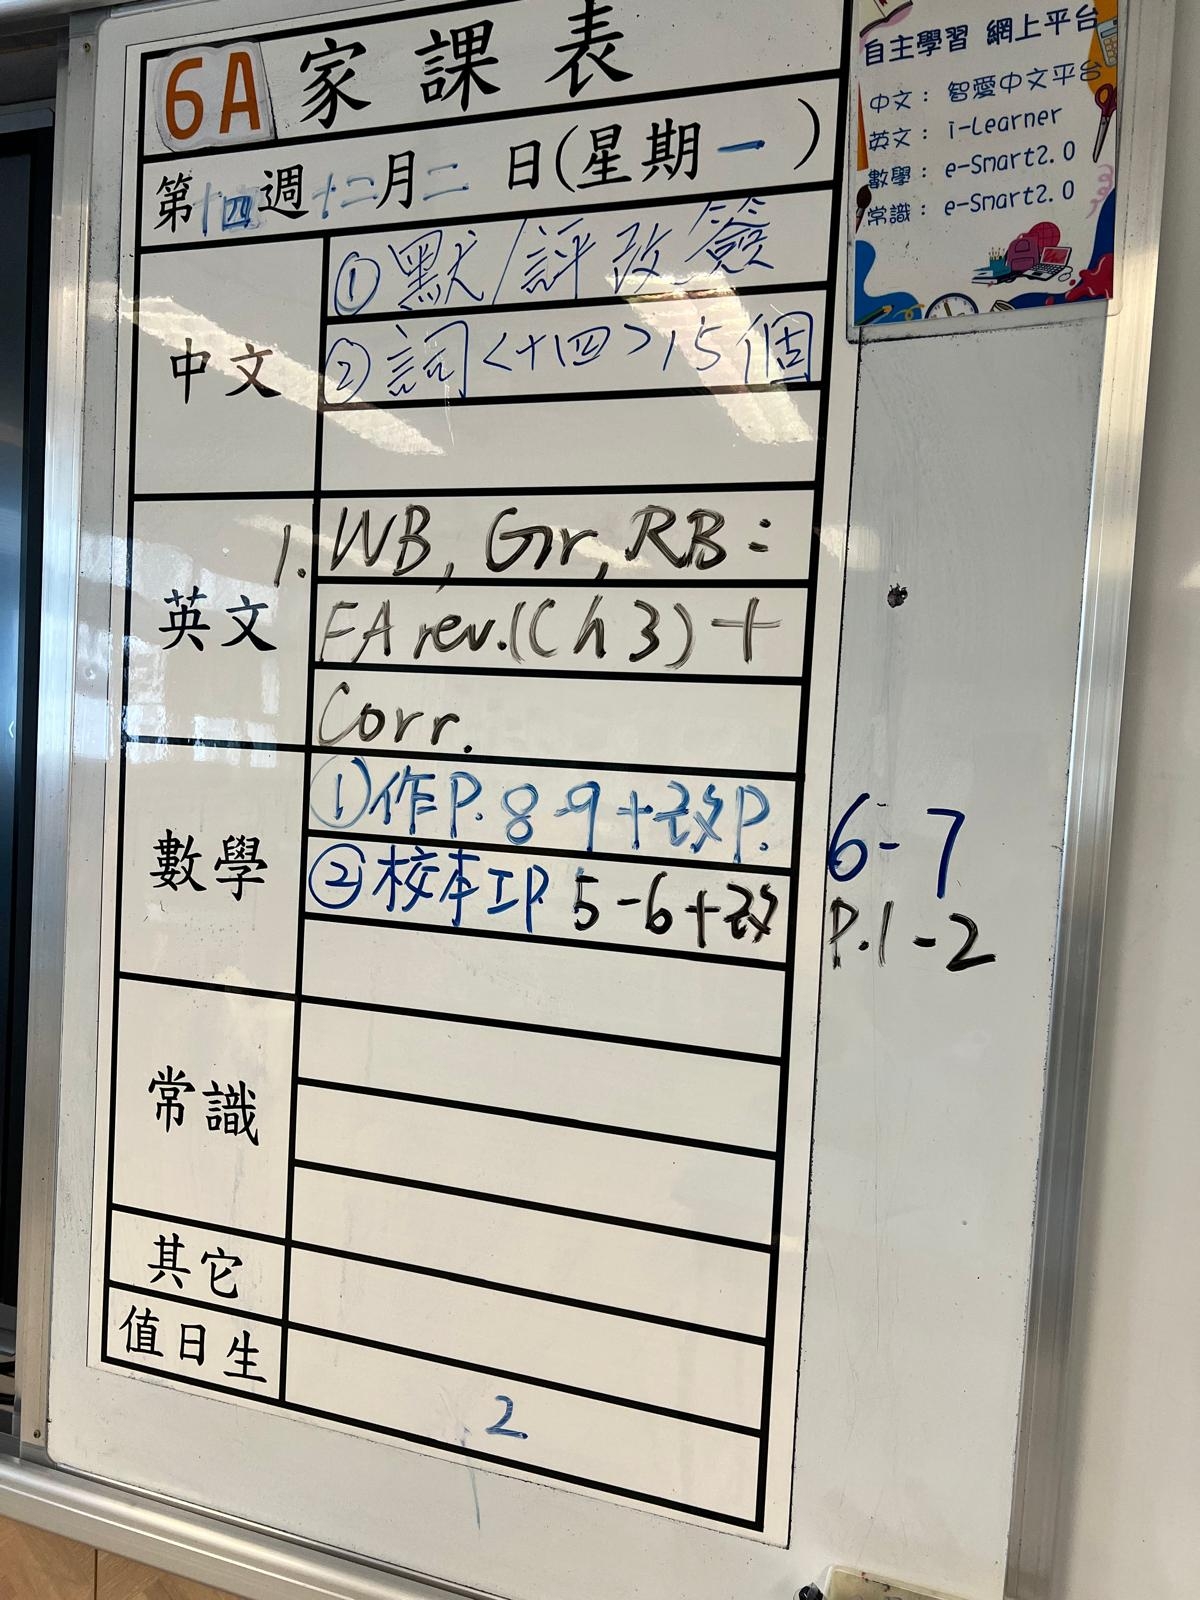 6A 家課表
第十四週十二月二日(星期一)
中文
①默/評改簽
②詞<十四>15個
英文
1. WB, Gr, RB:
FA rev.(Ch3)+
Corr.
數學
①作P. 8-9+改P. 6-7
②校本工P 5-6+改 P.1-2
常識
其它
值日生
2
自主學習 網上平台
中文： 智愛中文平台
英文： i-Learner
數學： e-Smart2.0
常識： e-Smart2.0